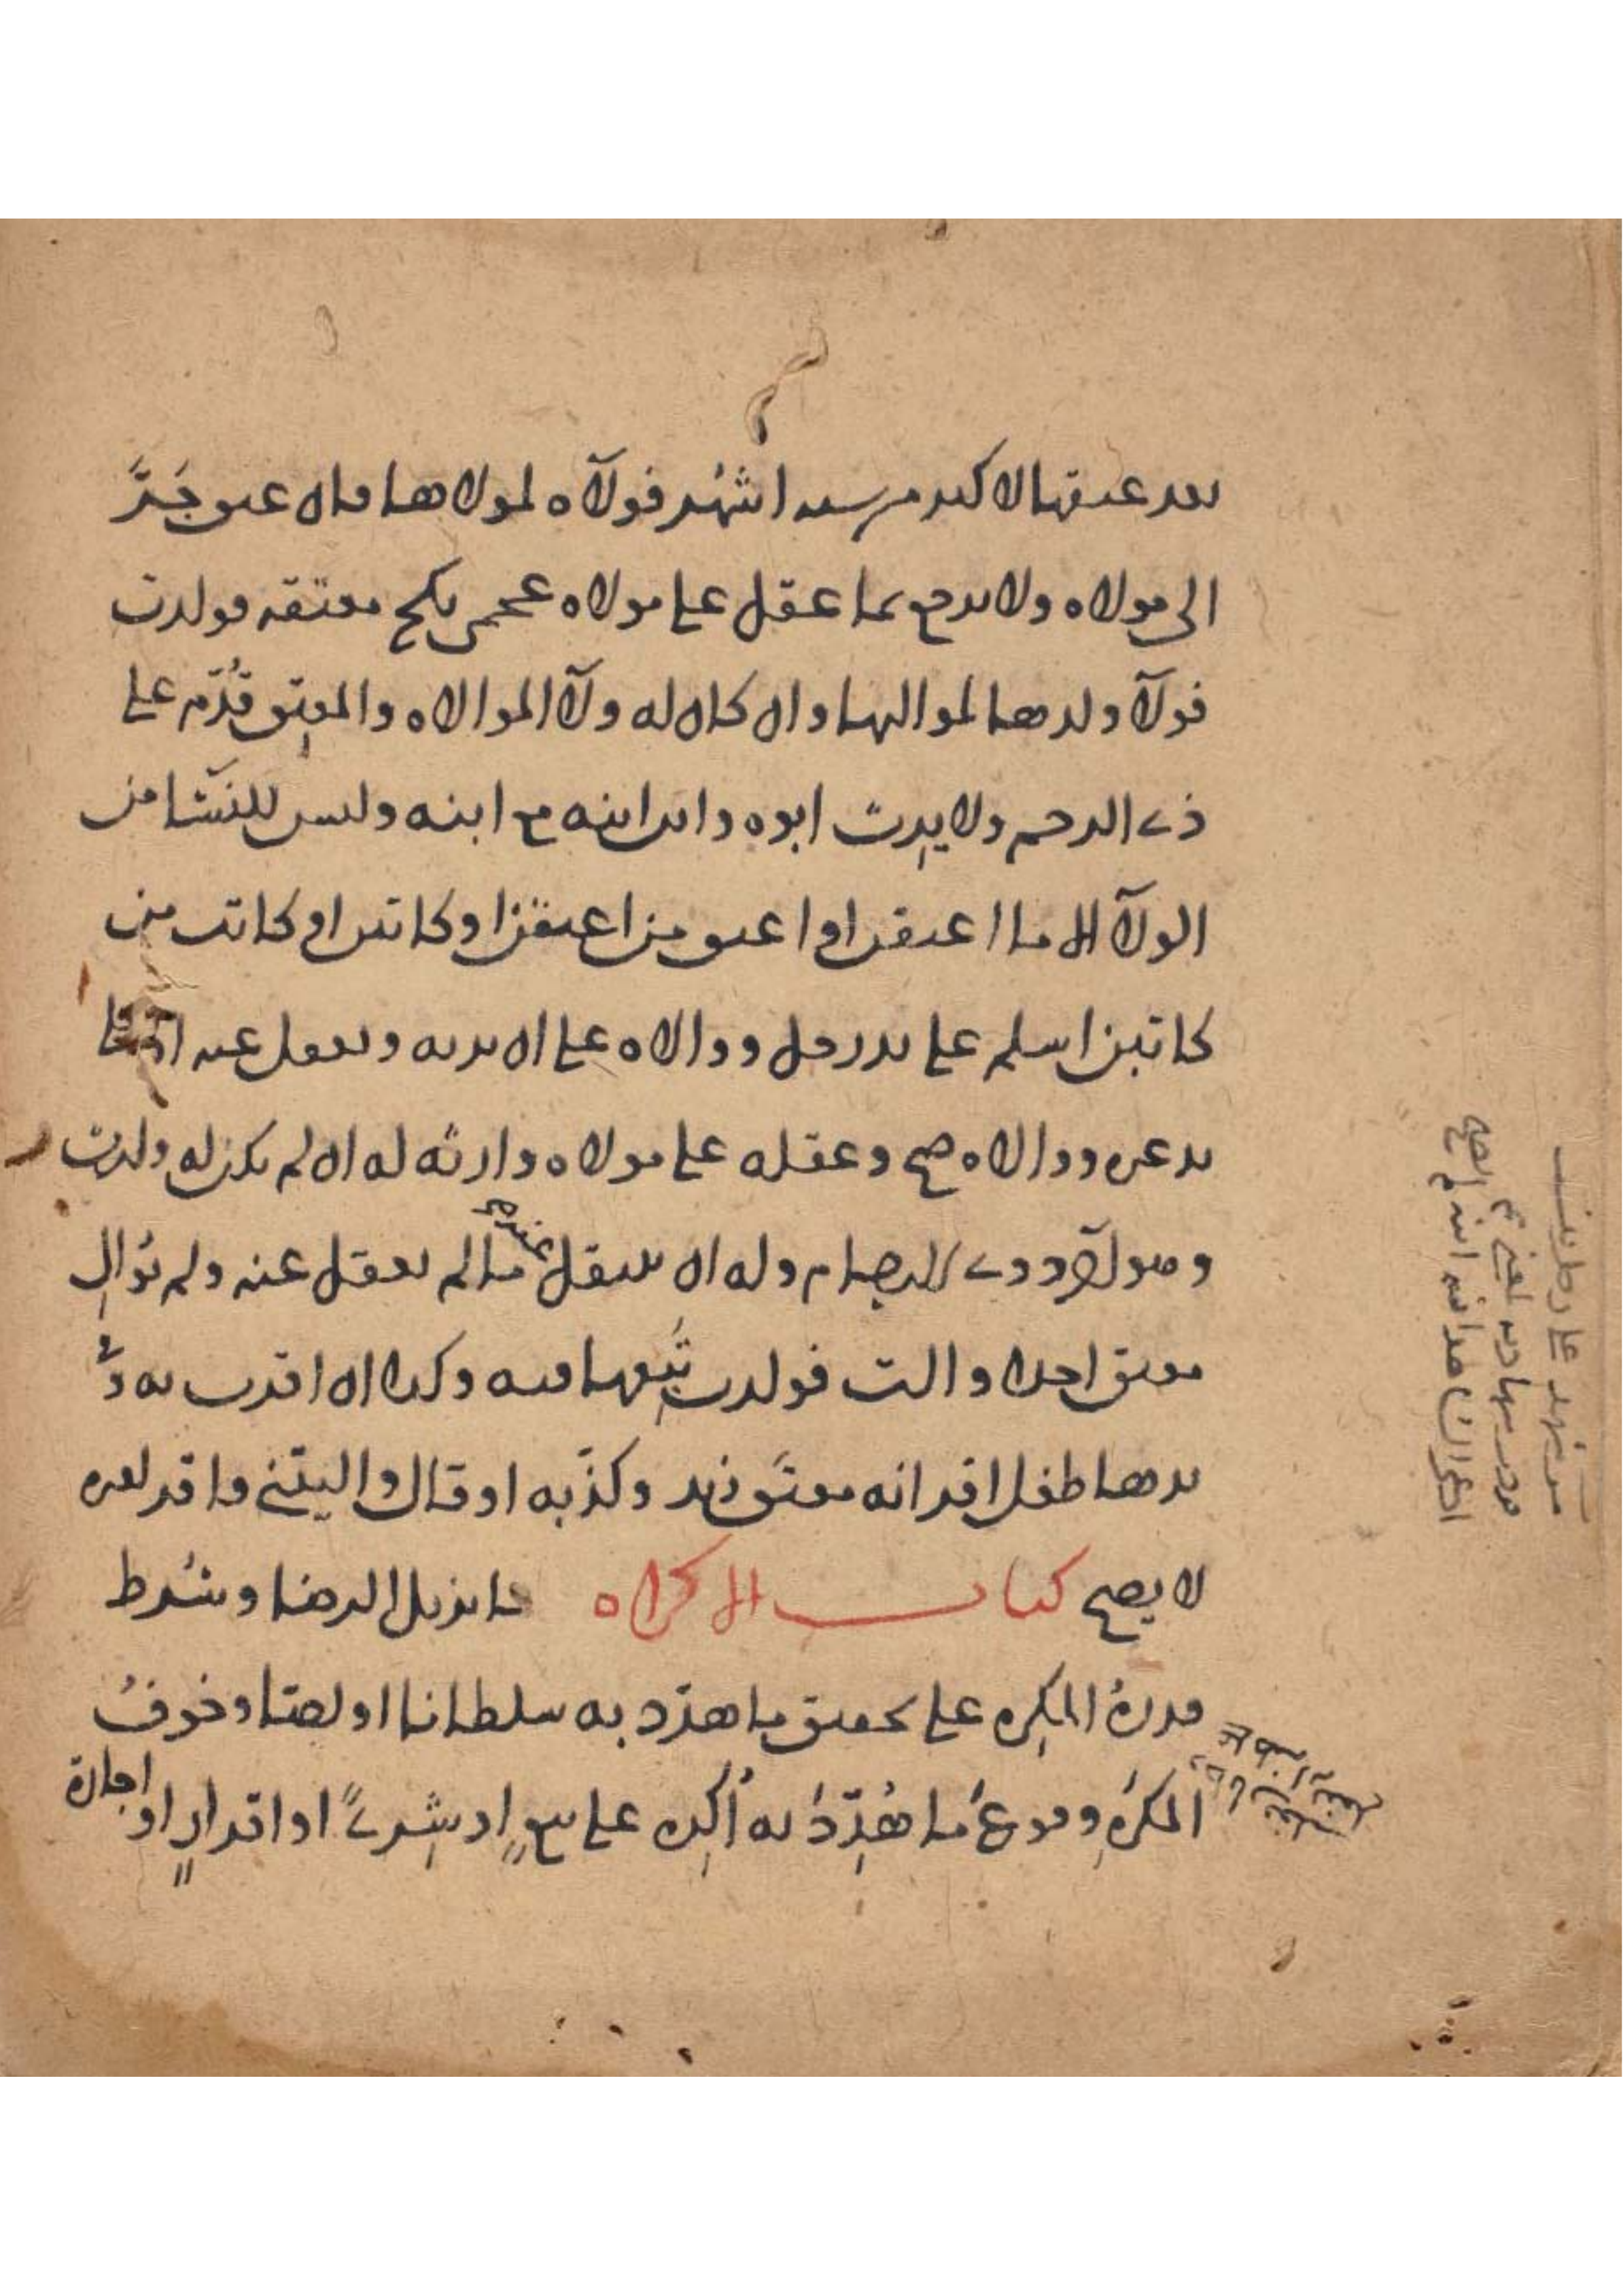 بعد عتقها لاكثر من ستة اشهر فولآه لمولاها فان عتق جَرَّ
الى مولاه ولا يرجع بما عقل على مولاه عجمي نكح معتقه فولدت
فولآ ولدها لمواليها وان كان له ولآ الموالاه والمعتِق قُدّم على
ذي الرحم ولا يرث ابوه وابن ابنه مع ابنه وليس للنسآ من
الولآ الا ما اعتقن او اعتق من اعتقن او كاتبن او كاتب من
كاتبن اسلم على يد رجل ووالاه على ان يرثه ويعقل عنه او على
يد غيره ووالاه صح وعقله على مولاه وارثه له ان لم يكن له وارث
وهو آخر ذوي الارحام وله ان ينتقل عنه ما لم يعقل عنه ولم يُوالِ
معتق احدا والت فولدت تَبِعها فيه وكذا ان اقرت به وفي
يدها طفل اقر انه معتَق زيد وكذّبه او قال واليتني فاقر لغيره
لا يصح كتاب الاكراه ما يزيل الرضا وشُرط
قدرةُ المكرِه على تحقيق ما هدّد به سلطانا او لصا وخوفُ
المكرَهِ وقوعَ ما هُدِّدَ به أُكِره على بيعٍ او شِرىً او اقرارٍ او اجارة